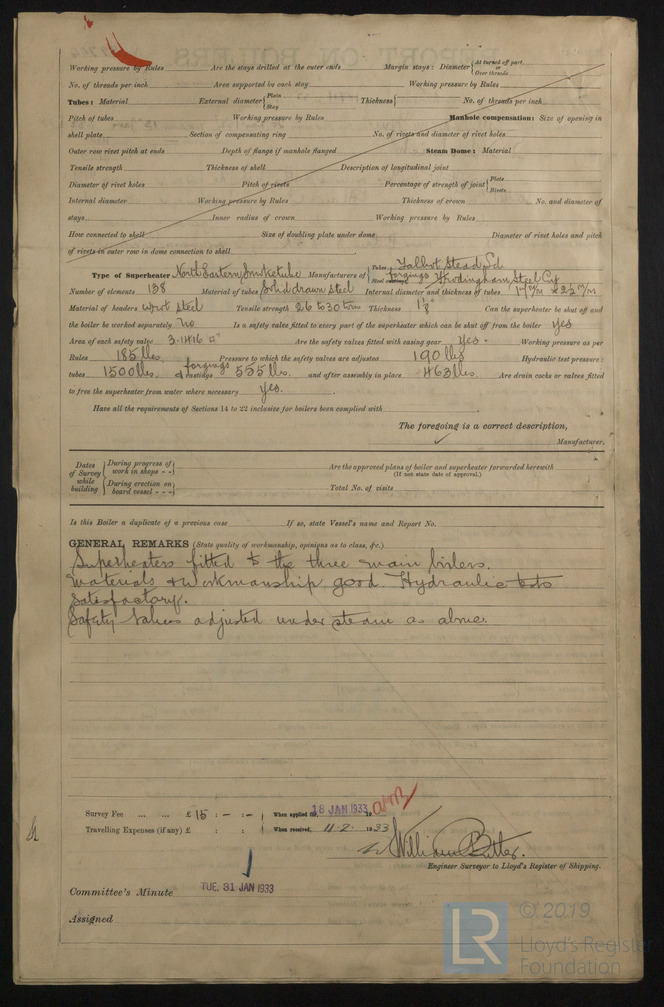 Working pressure by Rules Are the stays drilled at the outer ends Margin stays: Diameter { At turned off part, or Over threads
No. of threads per inch Area supported by each stay Working pressure by Rules
Tubes: Material External diameter { Plain Stay Thickness { No. of threads per inch
Pitch of tubes Working pressure by Rules Manhole compensation: Size of opening in
shell plate Section of compensating ring No. of rivets and diameter of rivet holes
Outer row rivet pitch at ends Depth of flange if manhole flanged Steam Dome: Material
Tensile strength Thickness of shell Description of longitudinal joint
Diameter of rivet holes Pitch of rivets Percentage of strength of joint { Plate Rivets
Internal diameter Working pressure by Rules Thickness of crown No. and diameter of
stays Inner radius of crown Working pressure by Rules
How connected to shell Size of doubling plate under dome Diameter of rivet holes and pitch
of rivets in outer row in dome connection to shell
Type of Superheater North Eastern Smoketube Manufacturers of { Tubes Talbot Stead Ld forgings Steel Frodingham Steel Coy
Number of elements 138 Material of tubes Solid drawn steel Internal diameter and thickness of tubes 17 m/m × 2½ m/m
Material of headers Wrot steel Tensile strength 26 to 30 tons Thickness 1⅛" Can the superheater be shut off and
the boiler be worked separately No Is a safety valve fitted to every part of the superheater which can be shut off from the boiler yes
Area of each safety valve 3.1416 □" Are the safety valves fitted with easing gear Yes. Working pressure as per
Rules 185 lbs Pressure to which the safety valves are adjusted 190 lbs Hydraulic test pressure:
tubes 1500 lbs. forgings & castings 555 lbs. and after assembly in place 463 lbs. Are drain cocks or valves fitted
to free the superheater from water where necessary Yes.
Have all the requirements of Sections 14 to 22 inclusive for boilers been complied with
The foregoing is a correct description,
✓ Manufacturer.
Dates of Survey while building { During progress of work in shops - - During erection on board vessel - - - Are the approved plans of boiler and superheater forwarded herewith
(If not state date of approval.)
Total No. of visits
Is this Boiler a duplicate of a previous case If so, state Vessel's name and Report No.
GENERAL REMARKS (State quality of workmanship, opinions as to class, &c.)
Superheaters fitted to the three main boilers.
Materials & Workmanship good. Hydraulic tests
Satisfactory.
Safety Valves adjusted under steam as above.
Survey Fee ... ... £ 15 : - : - When applied for, 18 JAN 1933 19
Travelling Expenses (if any) £ : : When received, 11-2- 1933
William Butler.
Engineer Surveyor to Lloyd's Register of Shipping.
Committee's Minute TUE. 31 JAN 1933
Assigned
LR © 2019
Lloyd's Register
Foundation